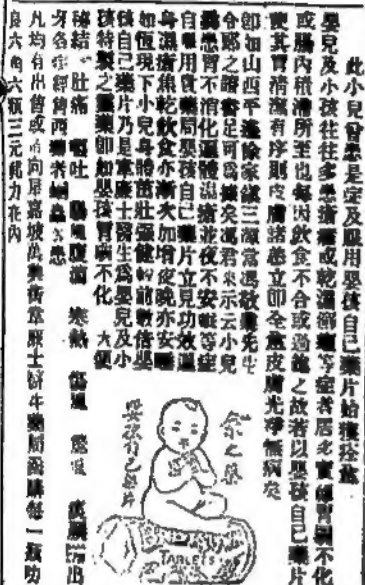 此小兒曾患是症及服用嬰孩自己藥片始獲痊愈
嬰兒及小孩往往多患瘡癬或乾濕癬癩等症者居多實緣胃調不化
或腸內積滯所至也每因飲食不合或過飽之故若以嬰孩自己藥片
使其胃清潔有序則皮膚諸恙立即全愈皮膚光淨無病矣
即如山西平遙徐家鎮三源當馮敬齋先生
令郎之證書足可為據矣馮君來示云小兒
曩患胃不消化遍體濕瘡並夜不安眠等症
自購用貴藥局嬰孩自己藥片立見功效遍
身濕瘡焦乾飲食亦漸次加增夜晚亦安睡
如恆現下小兒身體茁壯强健較前數倍嬰
孩自己藥片乃是韋廉士醫生為嬰兒及小
孩特製之靈藥即如嬰孩胃病不化 大便
秘結 肚痛 嘔吐 腹瀉 寒熱 傷風
牙各症經售西藥者
凡均有出售或向星嘉坡韋廉士醫生藥局函購每一瓶
六角六瓶三元郵力在內
嬰孩自己藥片
TABLETS